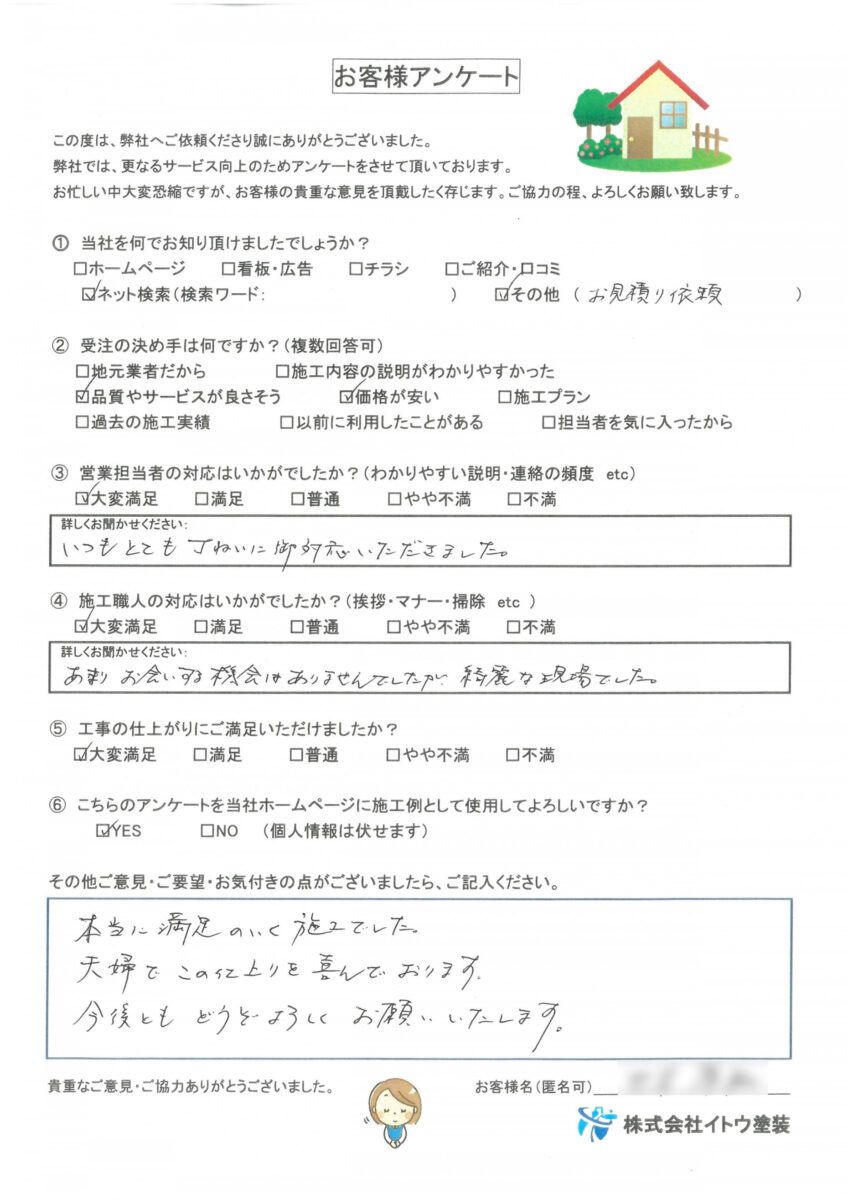 お客様アンケート
この度は、弊社へご依頼くださり誠にありがとうございました。
弊社では、更なるサービス向上のためアンケートをさせて頂いております。
お忙しい中大変恐縮ですが、お客様の貴重な意見を頂戴したく存じます。ご協力の程、よろしくお願い致します。
① 当社を何でお知り頂けましたでしょうか？
□ホームページ □看板・広告 □チラシ □ご紹介・口コミ
☑ネット検索(検索ワード: ) ☑その他 (お見積り依頼)
② 受注の決め手は何ですか？(複数回答可)
□地元業者だから □施工内容の説明がわかりやすかった
☑品質やサービスが良さそう ☑価格が安い □施工プラン
□過去の施工実績 □以前に利用したことがある □担当者を気に入ったから
③ 営業担当者の対応はいかがでしたか？(わかりやすい説明・連絡の頻度 etc)
☑大変満足 □満足 □普通 □やや不満 □不満
詳しくお聞かせください:
いつもとても丁ねいに御対応いただきました。
④ 施工職人の対応はいかがでしたか？(挨拶・マナー・掃除 etc )
☑大変満足 □満足 □普通 □やや不満 □不満
詳しくお聞かせください:
あまり お会いする機会はありませんでしたが 綺麗な現場でした。
⑤ 工事の仕上がりにご満足いただけましたか？
☑大変満足 □満足 □普通 □やや不満 □不満
⑥ こちらのアンケートを当社ホームページに施工例として使用してよろしいですか？
☑YES □NO (個人情報は伏せます)
その他ご意見・ご要望・お気付きの点がございましたら、ご記入ください。
本当に満足のいく施工でした。
夫婦でこの仕上りを喜んでおります。
今後とも どうぞよろしく お願いいたします。
貴重なご意見・ご協力ありがとうございました。 お客様名(匿名可)
株式会社イトウ塗装